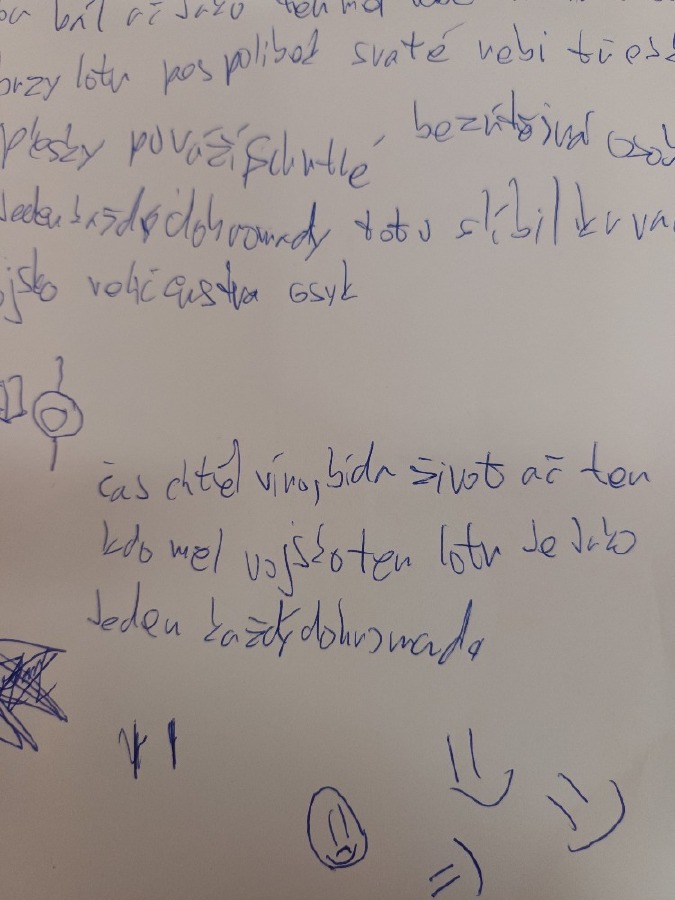 bál ač jako ten měl
brzy lotu pospolibož svaté nebi třesk
plesky považi schutlé bezútěšná
Jeden každý dohromady totu slíbil krva
ojsko veličenstva osyk
čas chtěl víno, bída život ač ten
kdo mel vojsko ten lotu Je Jako
Jeden každý dohromada